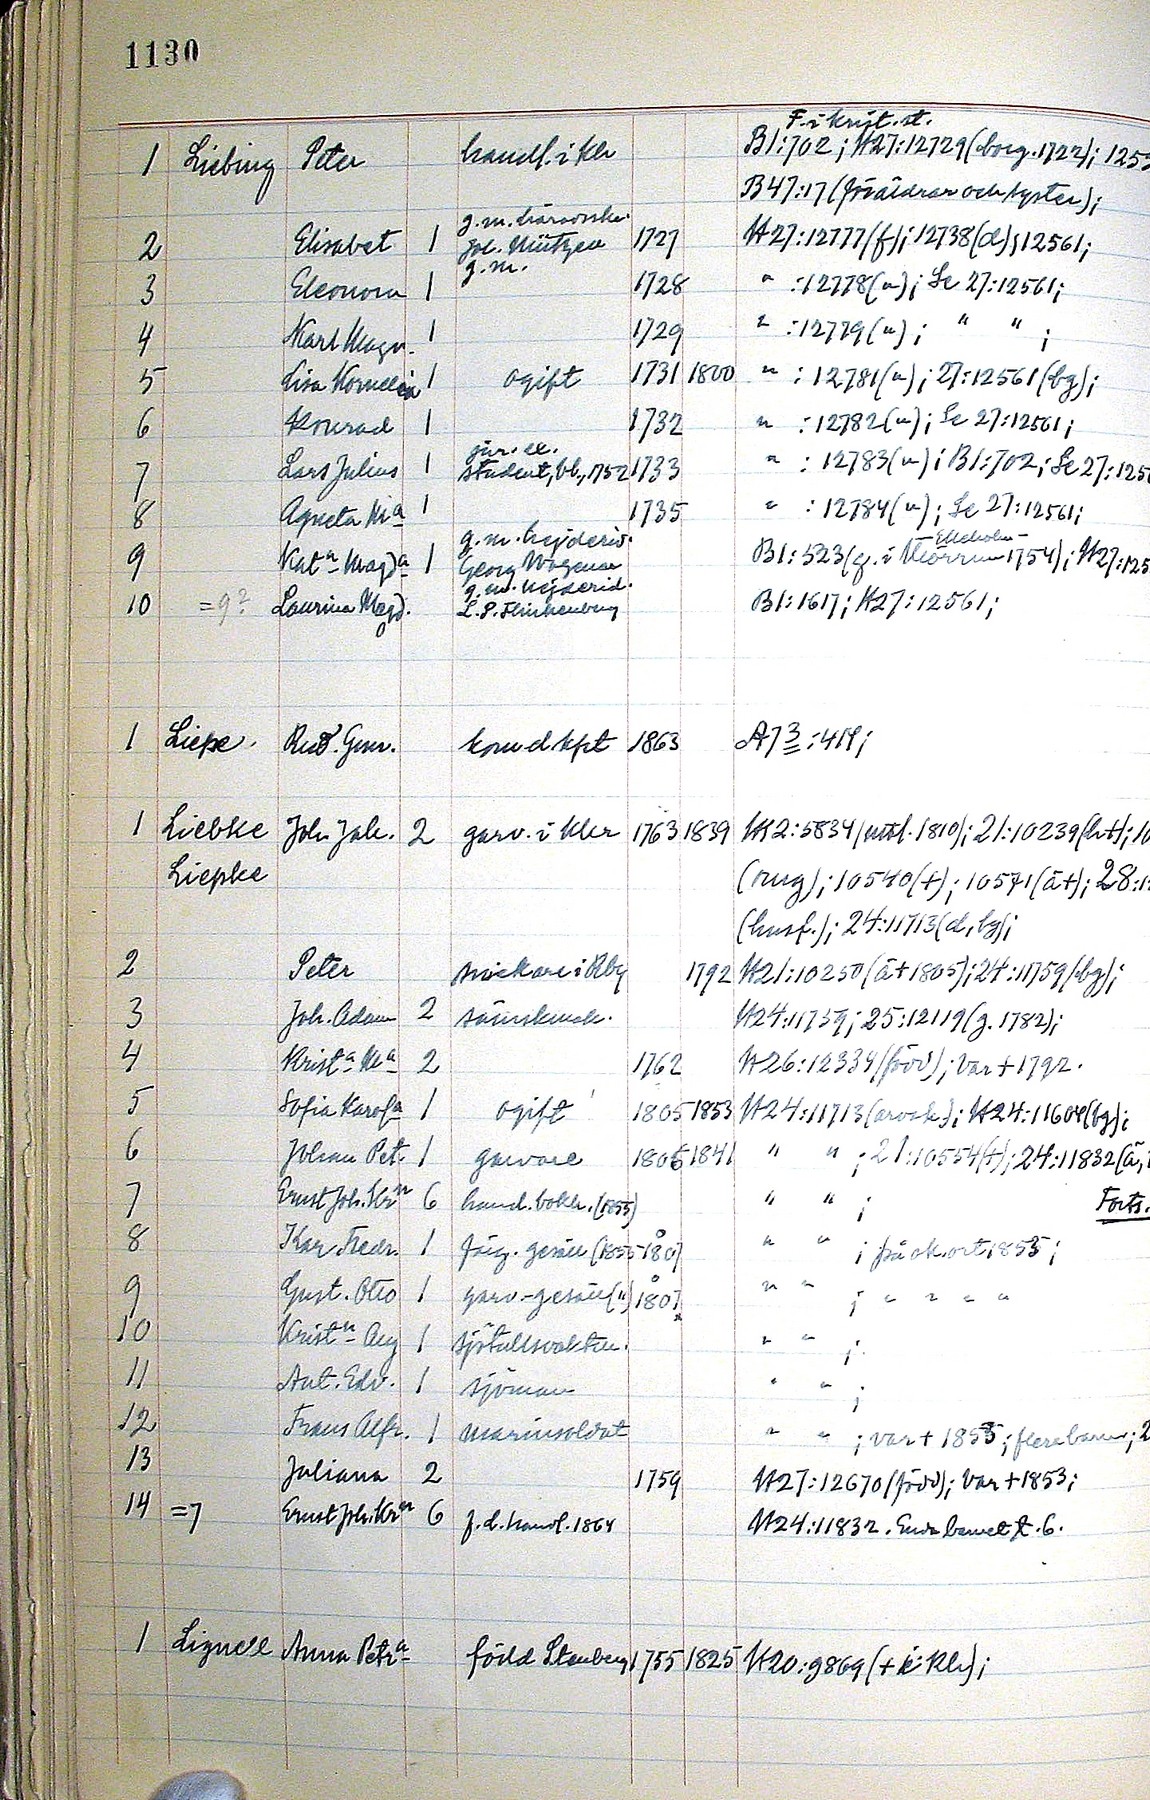 1130
F. i krist. st.
1 Liebing Peter handl. i Khr B1:702; K27:12729 (borg. 1722); 125
B47:17 (föräldrar och syster);
g.m.
2 Elisabet 1 Joh. 1727 K27:12777 (f); 12738 (d); 12561;
g.m.
3 Eleonora 1 1728 " :12778 ("); Se 27:12561;
4 Karl Magn. 1 1729 " :12779 ("); " " ;
5 Lisa Kornelia 1 ogift 1731 1800 " :12781 ("); 27:12561 (bg);
6 Konrad 1 1732 " :12782 ("); Se 27:12561;
jur. ex.
7 Lars Julius 1 student, bl., 1752 1733 " :12783 ("); B1:702; Se 27:125
8 Agneta Mª 1 1735 " :12784 ("); Se 27:12561;
g.m.
9 Katª Magdª 1 Georg B1:523 (g. i 1754); K27:125
g.m.
10 =9? Laurina Magd. L. P. B1:1617; K27:12561;
1 Liepe. Rud. Gun. 1863 A73:419;
1 Liebke Joh. Jak. 2 garv. i Khr 1763 1839 K2:5834 (1810); 21:10239
Liepke 10540 (+); 10541 (ä+); 28:1
(husf.); 24:11713 (d, bg);
2 Peter snickare i Rby 1792 K21:10250 (ä+ 1805); 24:11759 (bg);
3 Joh. Adam 2 K24:11759; 25:12119 (g. 1782);
4 Kristª Mª 2 1762 K26:12334 (född); var + 1792.
5 Sofia Karolª 1 ogift 1805 1853 K24:11713; K24:11604 (bg);
6 Johan Pet. 1 garvare 1806 1841 " " ; 21:10554 (+); 24:11832 (ä,
7 Ernst Joh. Krn 6 hand. bokh. (1855) " " ; Forts.
8 Kar. Fredr. 1 färg. gesäll (1855 180 " " ; på ok. ort 1855;
9 Gust. Otto 1 garv.-gesäll (") 1807 " " ; " " " "
10 Kristn Aug 1 sjötullsvaktm. " " ;
11 Ant. Edv. 1 sjöman " " ;
12 Frans Alfr. 1 marinsoldat " " ; var + 1853; flere barn; 2
13 Juliana 2 1759 K27:12670 (född); var + 1853;
14 =7 Ernst Joh. Krn 6 f.d. handl. 1864 K24:11832. Enda barnet t. 6.
1 Lignell Anna Petrª född Stenberg 1755 1825 K20:9869 (+ i Khr);